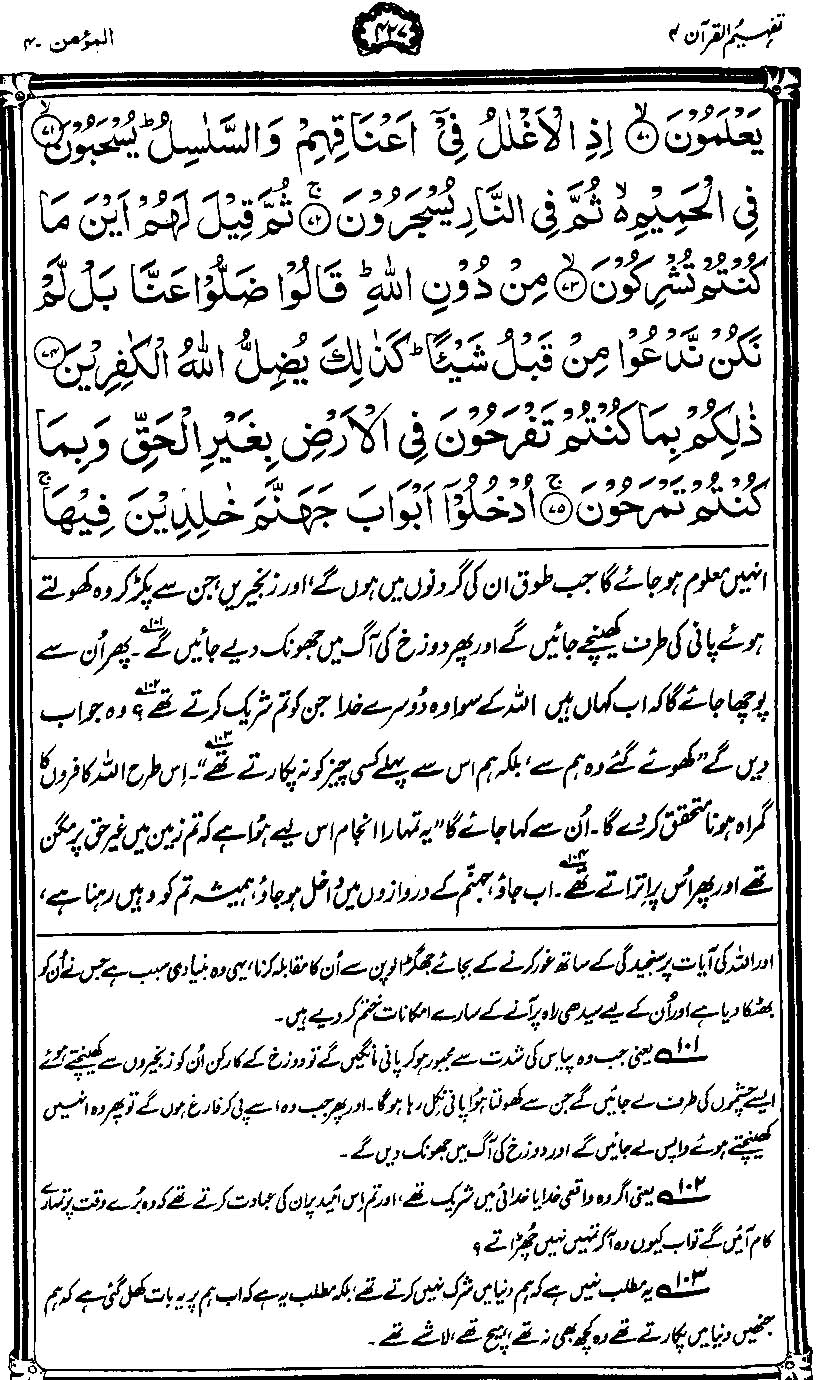 تفہیم القرآن ۴
۴۲۷
المؤمن ۴۰
يَعْلَمُوْنَ ﴿۷۰﴾ اِذِ الْاَغْلٰلُ فِيْٓ اَعْنَاقِهِمْ وَالسَّلٰسِلُ ؕ يُسْحَبُوْنَ ﴿۷۱﴾
فِي الْحَمِيْمِ ۙ۬ ثُمَّ فِي النَّارِ يُسْجَرُوْنَ ﴿۷۲﴾ ثُمَّ قِيْلَ لَهُمْ اَيْنَ مَا
كُنْتُمْ تُشْرِكُوْنَ ﴿۷۳﴾ مِنْ دُوْنِ اللّٰهِ ؕ قَالُوْا ضَلُّوْا عَنَّا بَلْ لَّمْ
نَكُنْ نَّدْعُوْا مِنْ قَبْلُ شَيْـًٔا ؕ كَذٰلِكَ يُضِلُّ اللّٰهُ الْكٰفِرِيْنَ ﴿۷۴﴾
ذٰلِكُمْ بِمَا كُنْتُمْ تَفْرَحُوْنَ فِي الْاَرْضِ بِغَيْرِ الْحَقِّ وَبِمَا
كُنْتُمْ تَمْرَحُوْنَ ﴿۷۵﴾ اُدْخُلُوْٓا اَبْوَابَ جَهَنَّمَ خٰلِدِيْنَ فِيْهَا ۚ
انہیں معلوم ہو جائے گا جب طوق ان کی گردنوں میں ہوں گے، اور زنجیریں، جن سے پکڑ کر وہ کھولتے
ہوئے پانی کی طرف کھینچے جائیں گے اور پھر دوزخ کی آگ میں جھونک دیے جائیں گے۱۰۱۔ پھر اُن سے
پوچھا جائے گا کہ اب کہاں ہیں اللہ کے سوا وہ دُوسرے خدا جن کو تم شریک کرتے تھے۱۰۲؟ وہ جواب
دیں گے ”کھوئے گئے وہ ہم سے، بلکہ ہم اس سے پہلے کسی چیز کو نہ پکارتے تھے۱۰۳“۔ اِس طرح اللہ کافروں کا
گمراہ ہونا متحقق کر دے گا۔ اُن سے کہا جائے گا ”یہ تمہارا انجام اس لیے ہوا ہے کہ تم زمین میں غیر حق پر مگن
تھے اور پھر اُس پر اِتراتے تھے۱۰۴۔ اب جاؤ، جہنّم کے دروازوں میں داخل ہو جاؤ، ہمیشہ تم کو وہیں رہنا ہے،
اور اللہ کی آیات پر سنجیدگی کے ساتھ غور کرنے کے بجائے جھگڑالو پن سے اُن کا مقابلہ کرنا، یہی وہ بنیادی سبب ہے جس نے اُن کو
بھٹکا دیا ہے اور اُن کے لیے سیدھی راہ پر آنے کے سارے امکانات ختم کر دیے ہیں۔
۱۰۱ یعنی جب وہ پیاس کی شدت سے مجبور ہو کر پانی مانگیں گے تو دوزخ کے کارکن اُن کو زنجیروں سے کھینچتے ہوئے
ایسے چشموں کی طرف لے جائیں گے جن سے کھولتا ہوا پانی نکل رہا ہو گا۔ اور پھر جب وہ اسے پی کر فارغ ہوں گے تو پھر وہ انہیں
کھینچتے ہوئے واپس لے جائیں گے اور دوزخ کی آگ میں جھونک دیں گے۔
۱۰۲ یعنی اگر وہ واقعی خدا یا خدائی میں شریک تھے، اور تم اِس امید پر ان کی عبادت کرتے تھے کہ وہ بُرے وقت پر تمہارے
کام آئیں گے تو اب کیوں وہ آ کر تمہیں نہیں چھڑاتے؟
۱۰۳ یہ مطلب نہیں ہے کہ ہم دنیا میں شرک نہیں کرتے تھے، بلکہ مطلب یہ ہے کہ اب ہم پر یہ بات کھل گئی ہے کہ ہم
جنھیں دنیا میں پکارتے تھے وہ کچھ بھی نہ تھے، ہیچ تھے، لاشے تھے۔